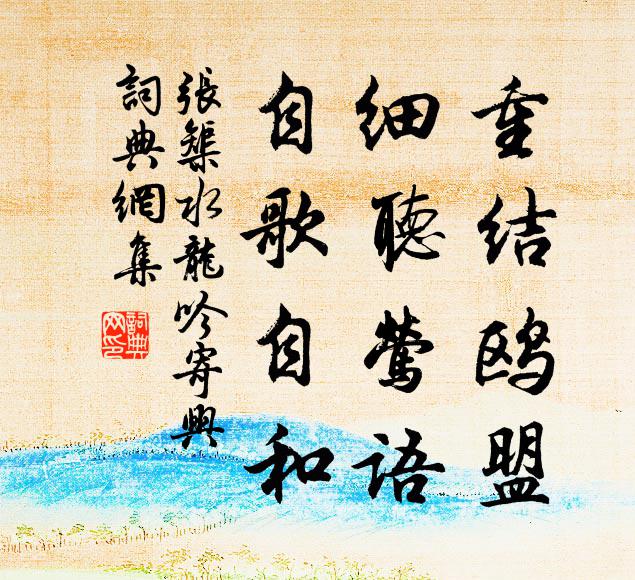 重结鸥盟
细聽莺语
自歌自和
張榘水龍吟寄興
詞典網集
詞典网印